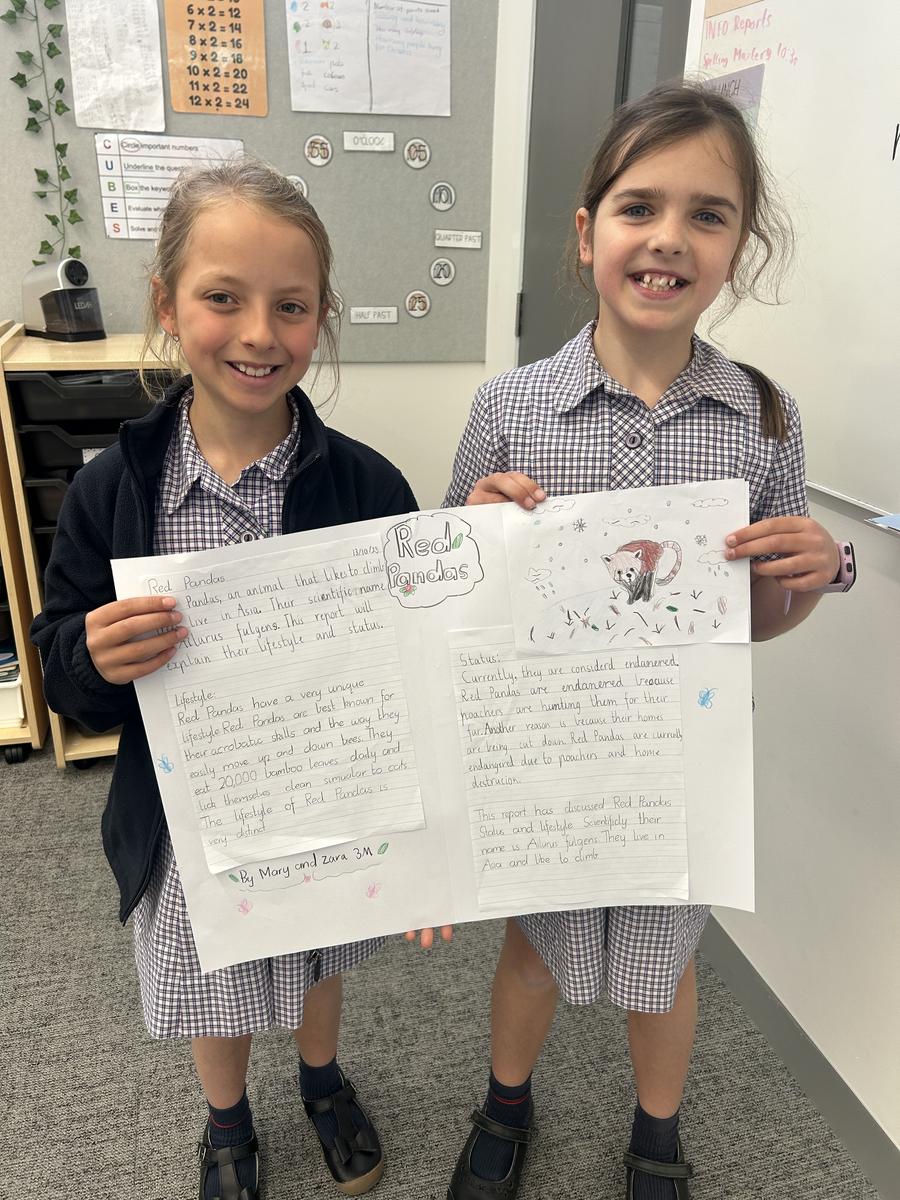 6 x 2 = 12
7 x 2 = 14
8 x 2 = 16
9 x 2 = 18
10 x 2 = 20
11 x 2 = 22
12 x 2 = 24
C Circle important numbers
U Underline the ques
B Box the keywo
E Evaluate wha
S Solve and
O'CLOCK
55
05
10
QUARTER PAST
20
25
HALF PAST
LEDAH
INFO Reports
Spelling Mastery
LUNCH
Red
Pandas
Red Pandas
Pandas, an animal that likes to climb
live in Asia. Their scientific name
Ailurus fulgens. This report will
explain their lifestyle and status.
Lifestyle:
Red Pandas have a very unique
lifestyle. Red Pandas are best known for
their acrobatic skills and the way they
easily move up and down trees. They
eat 20,000 bamboo leaves daily and
lick themselves clean simular to cats.
The lifestyle of Red Pandas is
very distinct.
By Mary and Zara 3M
Status:
Currently, they are considerd endanered.
Red Pandas are endanered because
poachers are hunting them for their
fur. Another reason is because their homes
are being cut down. Red Pandas are currently
endangered due to poachers and home
destrucion.
This report has discussed Red Pandas
Status and lifestyle. Scientificly their
name is Ailurus fulgens. They live in
Asia and like to climb.